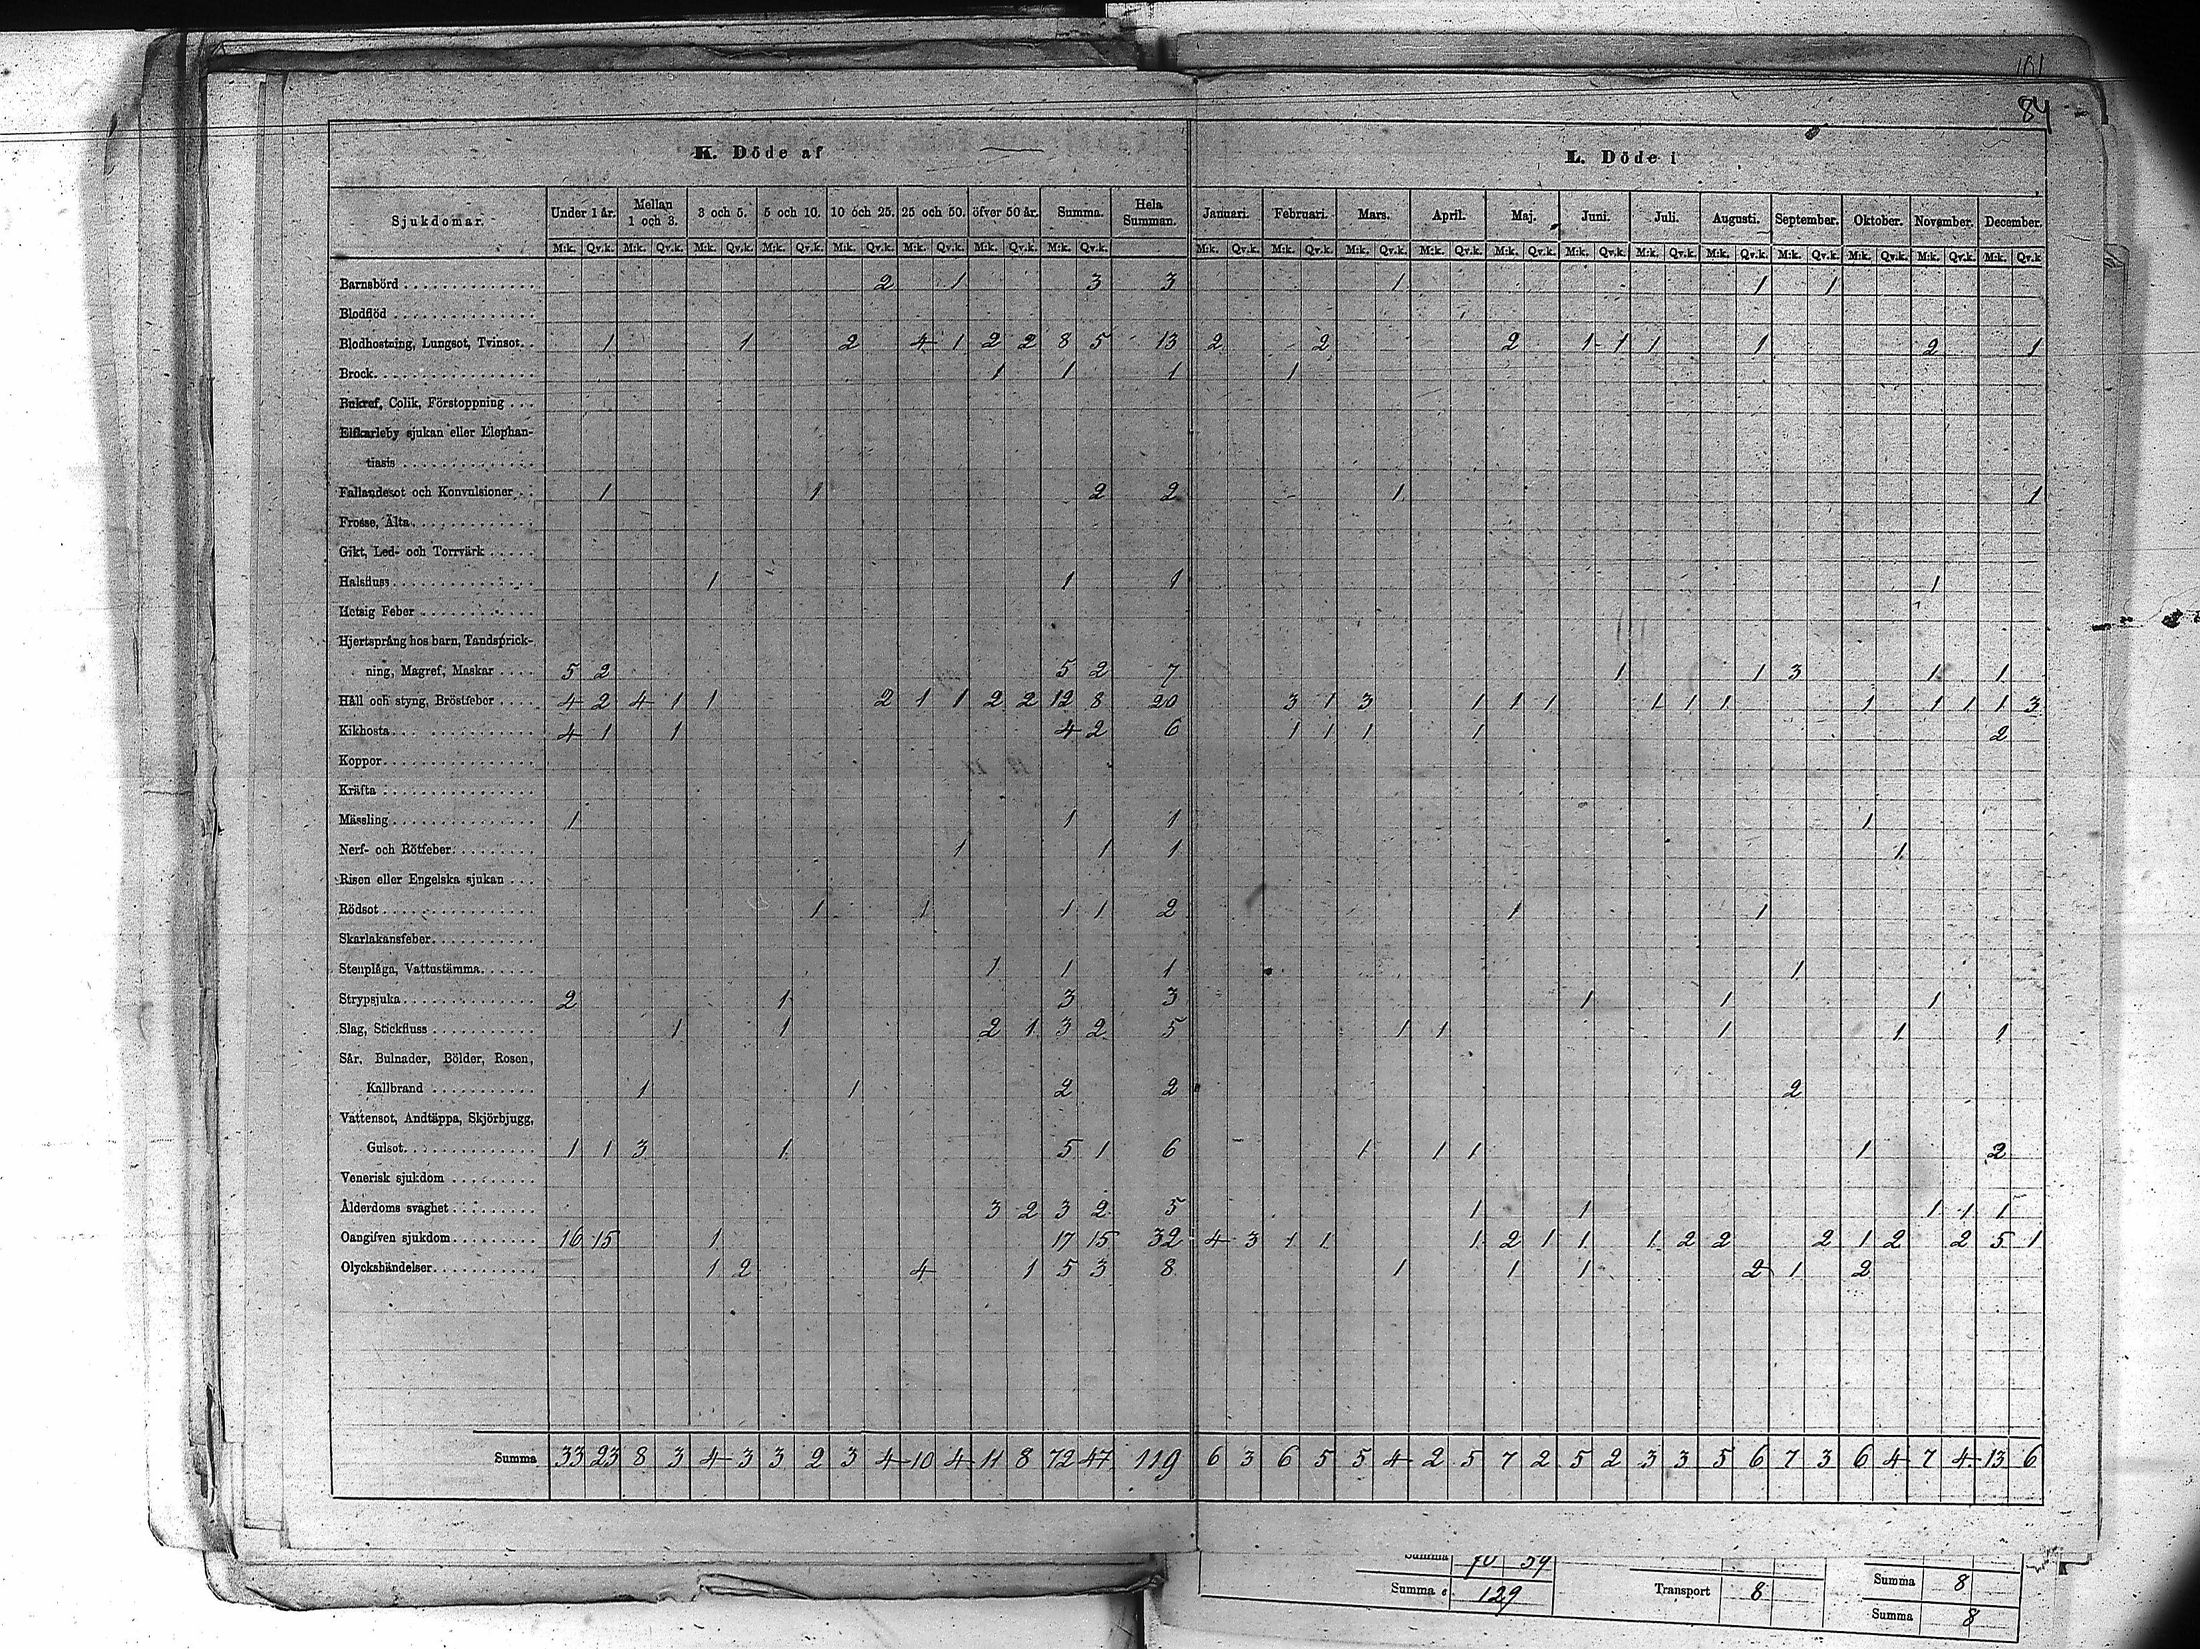 101
84
K. Döde af
L. Döde i
Sjukdomar. Under 1 år. Mellan 1 och 3. 3 och 5. 5 och 10. 10 och 25. 25 och 50. öfver 50 år. Summa. Hela Summan. Januari. Februari. Mars. April. Maj. Juni. Juli. Augusti. September. Oktober. November. December.
M:k. Qv.k. M:k. Qv.k. M:k. Qv.k. M:k. Qv.k. M:k. Qv.k. M:k. Qv.k. M:k. Qv.k. M:k. Qv.k. M:k. Qv.k. M:k. Qv.k. M:k. Qv.k. M:k. Qv.k. M:k. Qv.k. M:k. Qv.k. M:k. Qv.k. M:k. Qv.k. M:k. Qv.k. M:k. Qv.k. M:k. Qv.k. M:k. Qv.k
Barnsbörd 2 1 3 3 1 1 1
Blodflöd
Blodhostning, Lungsot, Tvinsot. 1 1 2 4 1 2 2 8 5 13 2 2 2 1 1 1 1 2 1
Brock. 1 1 1 1
Bukref, Colik, Förstoppning
Elfkarleby sjukan eller Elephan-
tiasis
Fallandesot och Konvulsioner 1 1 2 2 1 1
Frosse, Älta
Gikt, Led- och Torrvärk
Halsfluss 1 1 1 1
Hetsig Feber
Hjertsprång hos barn, Tandsprick-
ning, Magref, Maskar 5 2 5 2 7 1 1 3 1 1
Håll och styng, Bröstfeber 4 2 4 1 1 2 1 1 2 2 12 8 20 3 1 3 1 1 1 1 1 1 1 1 1 1 3
Kikhosta 4 1 1 4 2 6 1 1 1 1 2
Koppor
Kräfta
Mässling 1 1 1 1
Nerf- och Rötfeber 1 1 1 1
Risen eller Engelska sjukan
Rödsot 1 1 1 1 2 1 1
Skarlakansfeber
Stenplåga, Vattustämma 1 1 1 1
Strypsjuka 2 1 3 3 1 1 1
Slag, Stickfluss 1 1 2 1 3 2 5 1 1 1 1 1
Sår, Bulnader, Bölder, Rosen,
Kallbrand 1 1 2 2 2
Vattensot, Andtäppa, Skjörbjugg,
Gulsot 1 1 3 1 5 1 6 1 1 1 1 2
Venerisk sjukdom
Ålderdoms svaghet 3 2 3 2 5 1 1 1 1 1
Oangifven sjukdom 16 15 1 17 15 32 4 3 1 1 1 2 1 1 1 2 2 2 1 2 2 5 1
Olyckshändelser 1 2 4 1 5 3 8 1 1 1 2 1 2
Summa 33 23 8 3 4 3 3 2 3 4 10 4 11 8 72 47 119 6 3 6 5 5 4 2 5 7 2 5 2 3 3 5 6 7 3 6 4 7 4 13 6
Summa 70 59
Summa 129 Transport 8 Summa 8
Summa 8